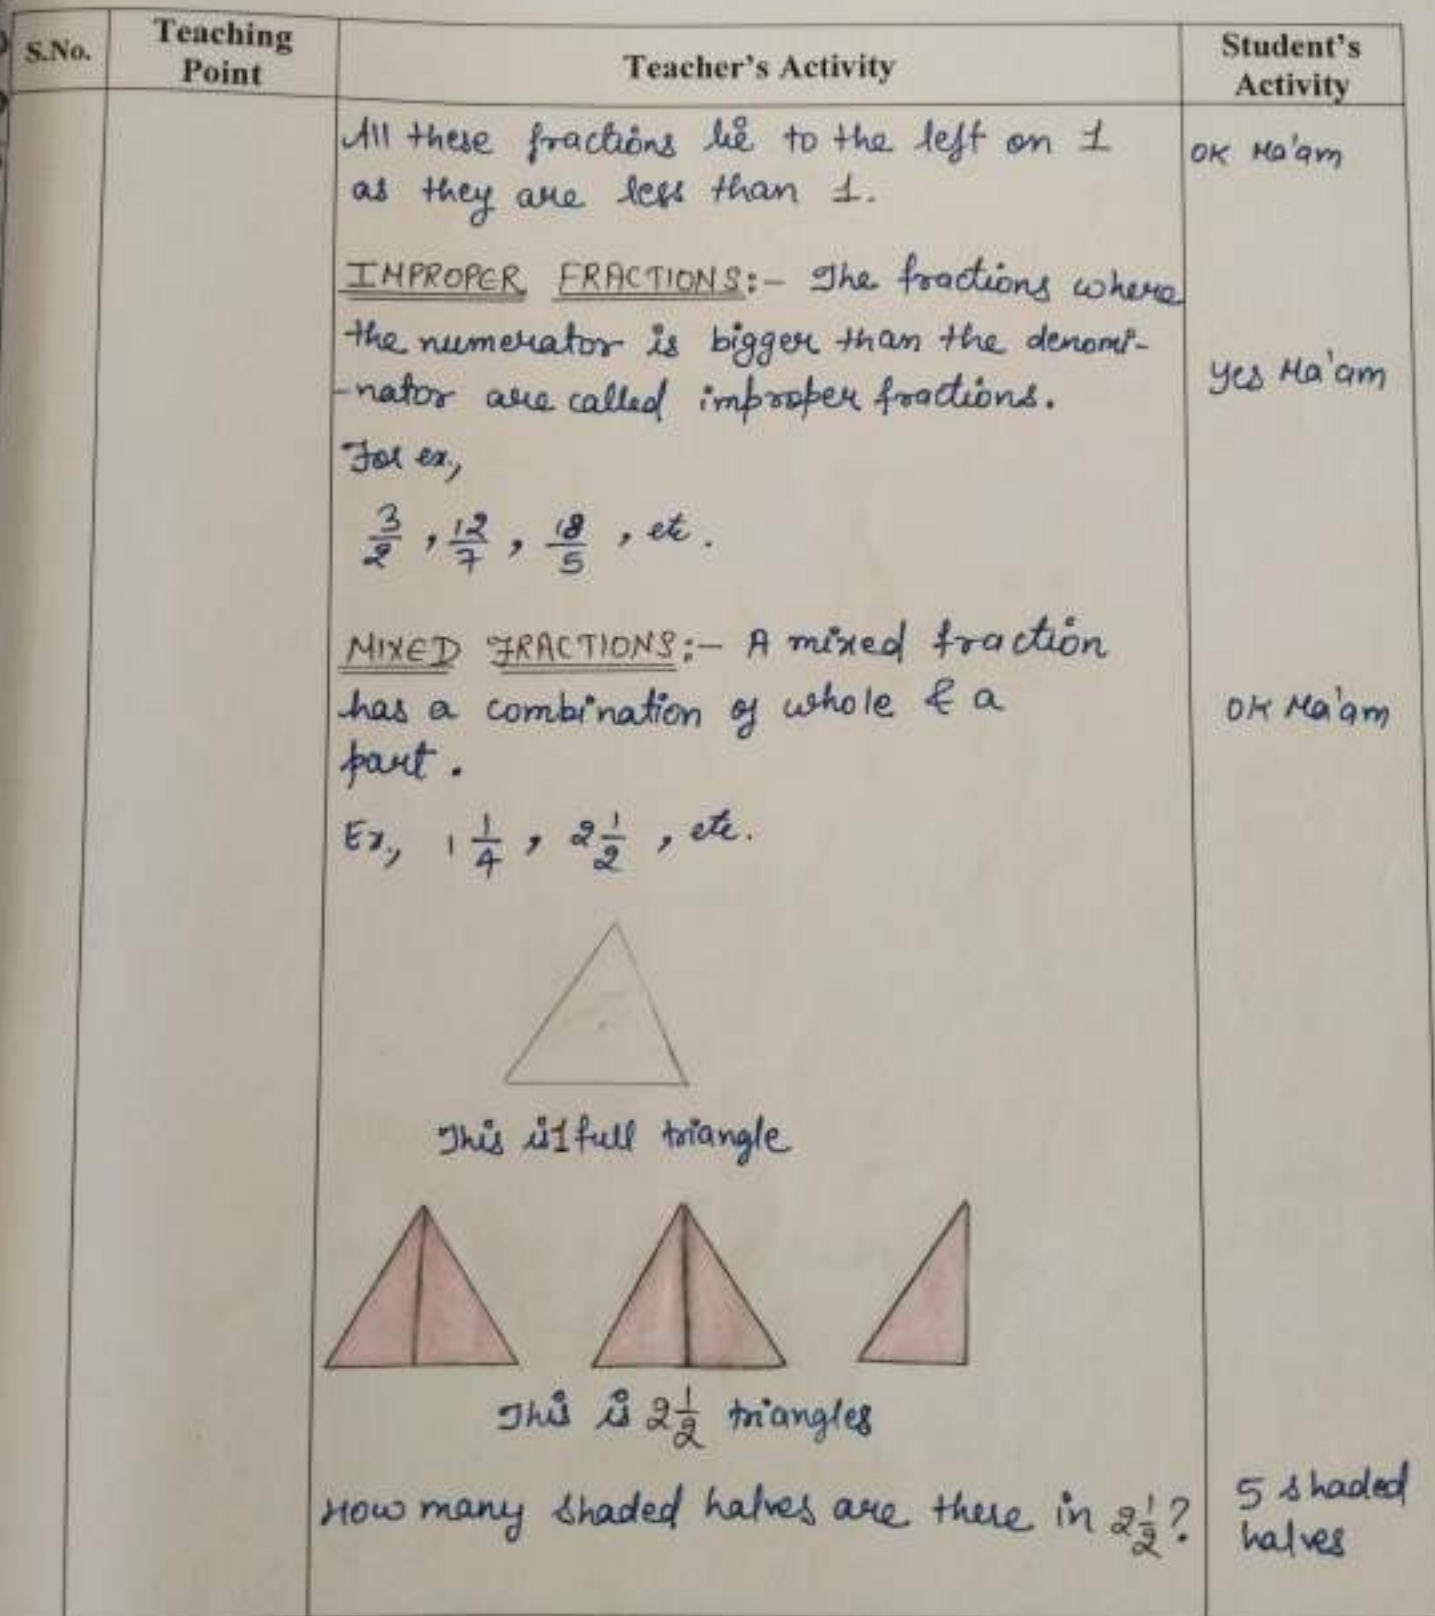 S.No.
Teaching
Point
Teacher's Activity
Student's
Activity
All these fractions lie to the left on 1
as they are less than 1.
OK Ma'am
IMPROPER FRACTIONS:- The fractions where
the numerator is bigger than the denomi-
-nator are called improper fractions.
Yes Ma'am
For ex.,
3/2, 12/7, 18/5, etc.
MIXED FRACTIONS:- A mixed fraction
has a combination of whole & a
part.
OK Ma'am
Ex., 1 1/4, 2 1/2, etc.
This is 1 full triangle
This is 2 1/2 triangles
How many shaded halves are there in 2 1/2?
5 shaded
halves